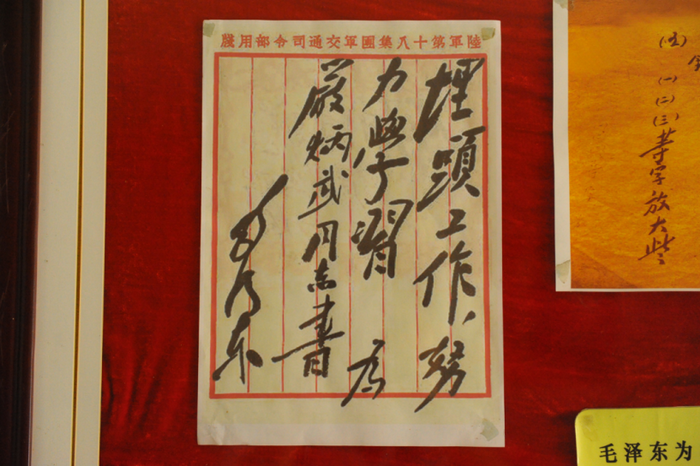 陸軍第十八集團軍交通司令部用牋
埋頭工作、努
力學習 為
嚴炳武同志書
毛澤东
(五)
(一)(二)(三)等字放大些
毛泽东为